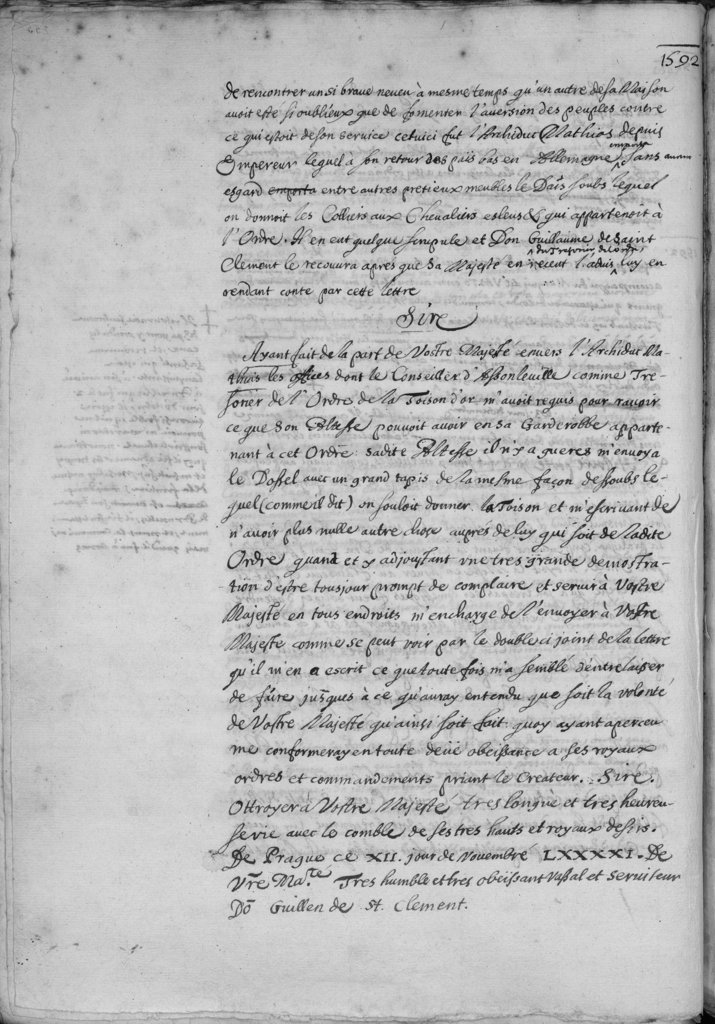 1592
de rencontrer un si brave neveu à mesme temps qu'un autre de sa Maison
avoit esté si oublieux que de fomenter l'aversion des peuples contre
ce qui estoit de son service cetuici fut l'Archiduc Mathias depuis
Empereur lequel à son retour des païs bas en Allemagne emporta sans aucun
esgard emporta entre autres pretieux meubles le Dais soubs lequel
on donnoit les Colliers aux Chevaliers esleus & qui appartenoit à
l'Ordre. Il en eut quelque scrupule et Don Guillaume de Saint
Clement le recouvra apres que sa Majesté en receut l'advis du Tresorier de l'ordre luy en
rendant conte par cette lettre
Sire
Ayant fait de la part de Vostre Majesté envers l'Archiduc Ma-
thias les offices dont le Conseiller d'Assonleville comme Tre-
sorier de l'Ordre de la Toison d'or m'avoit requis pour ravoir
ce que Son Altesse pouvoit avoir en sa Garderobbe apparte-
nant à cet Ordre sadite Altesse il n'y a gueres m'envoya
le Dossel avec un grand tapis de la mesme façon dessoubs le-
quel (comme il dit) on souloit donner la Toison et m'escrivant de
n'avoir plus nulle autre chose aupres de luy qui soit de ladite
Ordre quand et y adjoustant une tres grande demostra-
tion d'estre tousjour prompt de complaire et servir à Vostre
Majesté en tous endroits m'encharge de l'envoyer à Vostre
Majesté comme se peut voir par le double ci joint de la lettre
qu'il m'en a escrit ce que toute fois m'a semblé d'entrelaisser
de faire jusques à ce qu'auray entendu que soit la volonté
de Vostre Majesté qu'ainsi soit fait quoy ayant aperceu
me conformeray en toute deüe obeissance a ses royaux
ordres et commandements priant le Createur. Sire.
Ottroyer à Vostre Majesté tres longue et tres heureu-
se vie avec le comble de ses tres hauts et royaux desirs.
De Prague ce XII. jour de Novembre LXXXXI. De
Vre Ma.té Tres humble et tres obeissant Vassal et serviteur
Dõ Guillen de St. Clement.